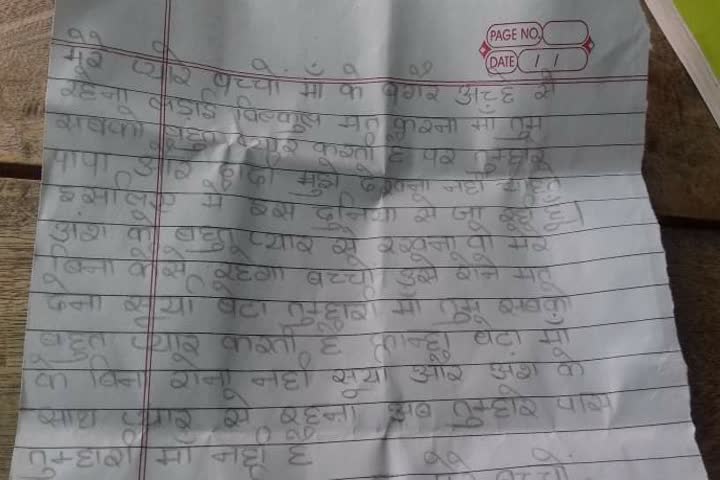 PAGE NO.
DATE / /
मेरे प्यारे बच्चों माँ के बगैर अच्छे से
रहना लड़ाई बिल्कुल मत करना माँ तुम
सबको बहुत प्यार करती है पर तुम्हारे
पापा और दादी मुझे देखना नहीं चाहते
इसलिए मैं इस दुनिया से जा रही हूँ।
अंश को बहुत प्यार से रखना वो मेरे
बिना कैसे रहेगा बच्चों उसे रोने मत
देना सूर्या बेटा तुम्हारी माँ तुम सबको
बहुत प्यार करती है कान्हा बेटा माँ
के बिना रोना नहीं सूर्या और अंश के
साथ प्यार से रहना अब तुम्हारे पास
तुम्हारी माँ नहीं है